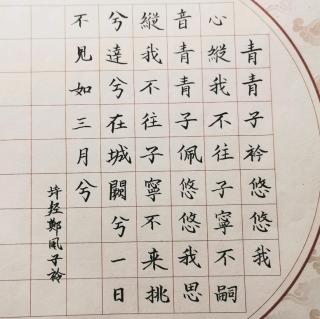 青青子衿悠悠我
心縱我不往子寧不嗣
音青青子佩悠悠我思
縱我不往子寧不来挑
兮達兮在城闕兮一日
不見如三月兮
诗经鄭风子衿